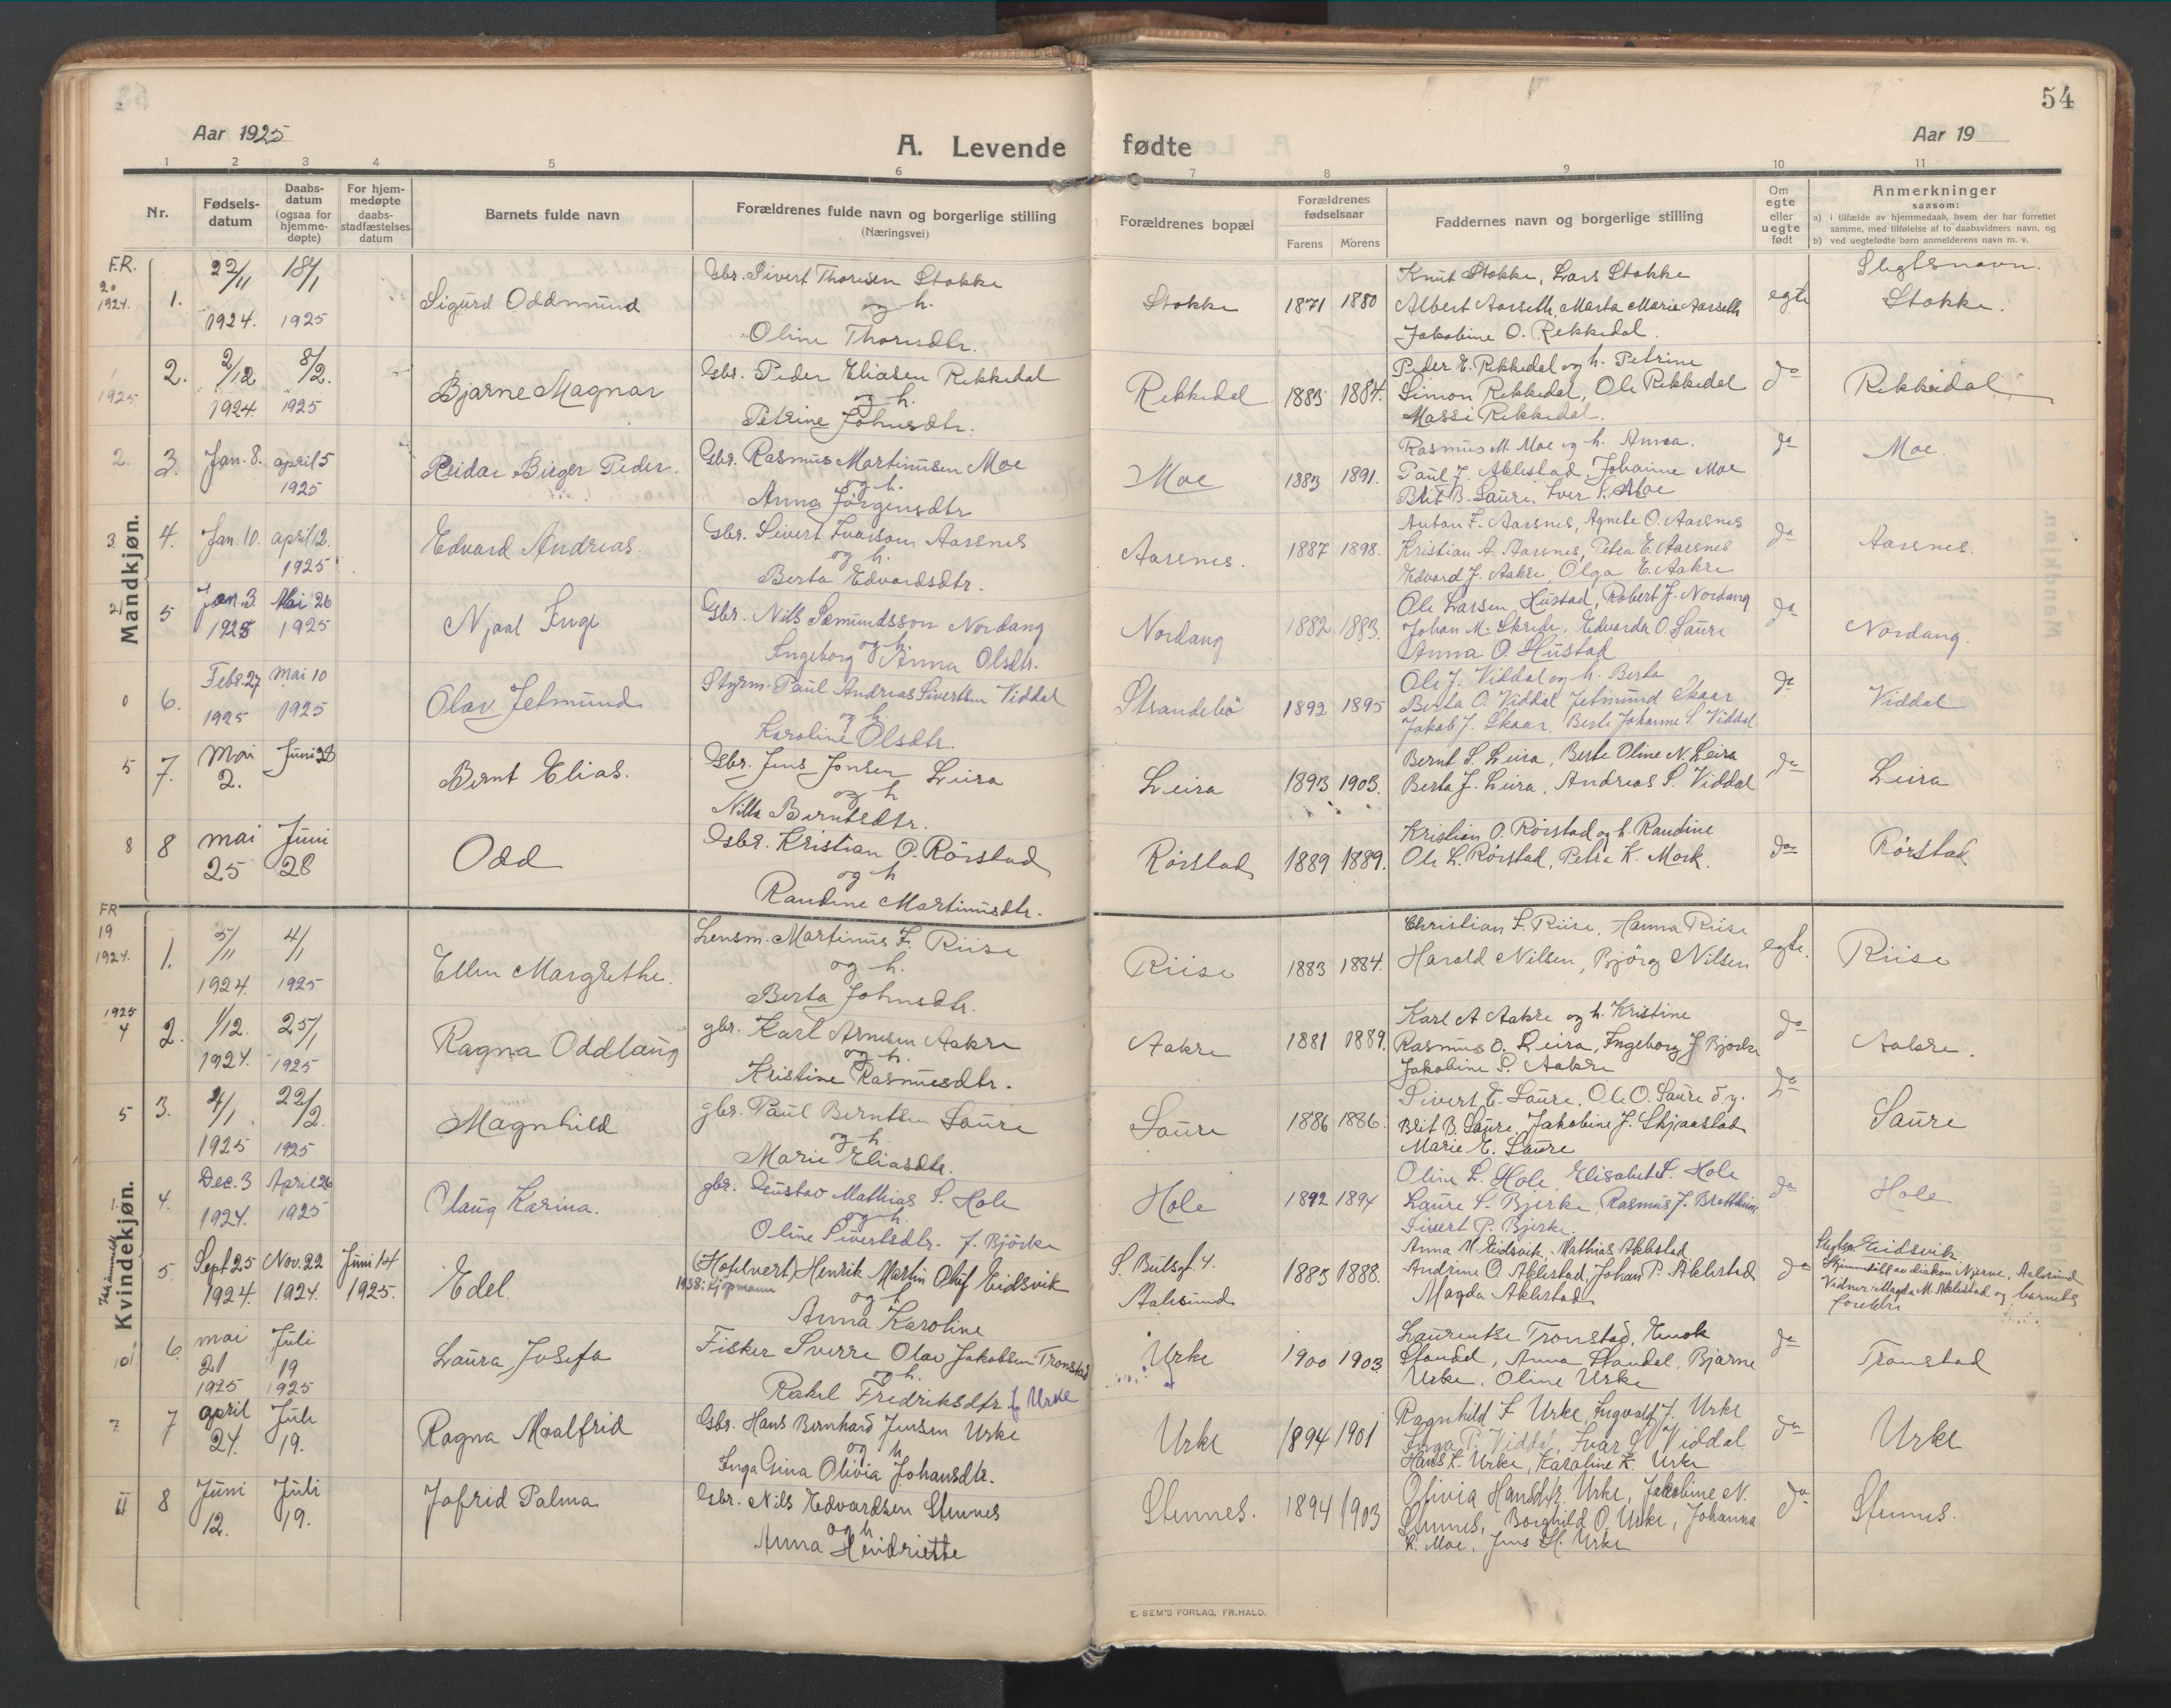 54
Aar 1925
A. Levende fødte
Aar 19
1 2 3 4 5 6 7 8 9 10 11
Nr.
Fødsels-
datum
Daabs-
datum
(ogsaa for
hjemme-
døpte)
For hjem-
medøpte
daabs-
stadfæstelses
datum
Barnets fulde navn
Forældrenes fulde navn og borgerlige stilling
(Næringsvei)
Forældrenes bopæl
Forældrenes
fødselsaar
Farens Morens
Faddernes navn og borgerlige stilling
Om
egte
eller
uegte
født
Anmerkninger
saasom:
a) i tilfælde av hjemmedaab, hvem der har forrettet
samme, med tilføielse af to daabsvidners navn, og
b) ved uegtefødte børn anmelderens navn m. v.
Slegtsnavn.
Mandkjøn.
F.R.
20
1924.
1.
22/11
1924.
18/1
1925
Sigurd Oddmund
Gbr. Sivert Thorisen Stokke
og h.
Oline Thorisdtr.
Stokke
1871 1880
Knut Stokke, Lars Stokke
Albert Aarseth, Marta Marie Aarseth
Jakobine O. Rekkedal.
egte
Stokke.
1
1925.
2.
2/12
1924.
8/2.
1925
Bjarne Magnar
Gbr. Peder Eliasen Rekkedal
og h.
Petrine Johnsdtr.
Rekkedal
1883 1884.
Peder E. Rekkedal og h. Petrine
Simon Rekkedal, Ole Rekkedal
Massi Rekkedal.
do
Rekkedal
2.
3.
Jan. 8.
april 5
1925
Reidar Birger Peder.
Gbr. Rasmus Martinusen Moe
og h.
Anna Jørgensdtr
Moe
1883 1891.
Rasmus M. Moe og h. Anna.
Paul J. Aklestad, Johanne Moe
Brit B. Saure, Iver S. Moe
do
Moe.
3.
4.
Jan. 10.
april 12.
1925
Edvard Andreas.
Gbr. Sivert Ivarson Aarsnes
og h.
Berta Edvardsdtr.
Aarsnes.
1887 1898.
Anton I. Aarsnes, Agnete O. Aarsnes
Kristian A. Aarsnes, Petra E. Aarsnes
Edvard J. Aakre, Olga E. Aakre
do
Aarsnes.
5
Jan. 3.
1925
Mai 26
1925
Njaal Inge
Gbr. Nils Samundsson Nordang
og h.
Ingeborg Anna Olsdtr.
Nordang
1882 1883.
Ole Larsen Hustad, Robert J. Nordang
Johan M. Skrede, Edvarda O. Saure
Anna O. Hustad
do
Nordang.
6.
Febr. 27
1925
Mai 10
1925
Olav Jetmund
Styrm. Paul Andreas Sivertsen Viddal
og h.
Karoline Olsdtr.
Strandebø
1892 1895
Ole J. Viddal og h. Berta
Berta O. Viddal Jetmund Skaar
Jakob J. Skaar, Berte Johanne S. Viddal
do
Viddal
5
7.
Mai
2.
Juni 28
Bernt Elias.
Gbr. Jens Jonsen Leira
og h
Nilla Berntsdtr.
Leira
1893 1903.
Bernt S. Leira, Berte Oline N. Leira
Berta J. Leira, Andreas S. Viddal
do
Leira
8
8
mai
25
Juni
28
Odd
Gbr. Kristian O. Rörstad
og h
Randine Martinusdtr.
Rørstad
1889 1889.
Kristian O. Rørstad og h. Randine
Ole L. Rørstad, Petra K. Mork.
do
Rørstad
Kvindekjøn.
FR
19
1924.
1.
5/11
1924.
4/1
1925
Ellen Margrethe.
Lensm. Martinus F. Riise
og h.
Berta Johnsdtr.
Riise
1883 1884.
Christian F. Riise, Hanna Riise
Harald Nilsen, Bjørg Nilsen
egte.
Riise
1925
4
2.
1/12.
1924.
25/1
1925
Ragna Oddlaug
gbr. Karl Arnesen Aakre
og h.
Kristine Rasmusdtr.
Aakre
1881 1889.
Karl A Aakre og h. Kristine
Rasmus O. Leira, Ingeborg J Bjørke
Jakobine P. Aakre
do
Aakre.
5
3.
4/1
1925
22/2.
1925
Magnhild
gbr. Paul Berntsen Saure
og h.
Marie Eliasdtr.
Saure
1886 1886.
Sivert E. Saure, Ole O. Saure d.y.
Brit B. Saure, Jakobine J. Skjaastad
Marie E. Saure
do
Saure
4.
Dec. 3
1924.
April 26
1925
Olaug Karina.
gbr. Gustav Mathias S. Hole
og h.
Oline Sivertsdtr. f. Bjørke
Hole
1892 1894
Oline L. Hole, Elisabet S. Hole
Laure S. Bjerke, Rasmus J. Brattheim
Sivert P. Bjerke.
do
Hole
5.
Sept 25
1924.
Nov. 22
1924.
Juni 14
1925.
Edel.
(Hotelvert) Henrik Martin Oluf Eidsvik
1938: kjøpmann
og h
Anna Karoline
S. Bulsgt. 4.
Aalesund
1885 1888.
Anna M. Eidsvik, Mathias Aklestad
Andrine O. Aklestad, Johan P. Aklestad
Magda Aklestad
do
Slegtsn. Eidsvik
Hjemmedøbt av diakon Njerve, Aalesund
Vidner: Magda M. Aklestad og barnets
forældre
10
6.
mai
21
1925
Juli
19
1925
Laura Josefa
Fisker Sverre Olav Jakobsen Tronstad
og h.
Rakel Fredriksdtr f. Urke
Urke
1900 1903
Laurentse Tronstad, Enok
Standal, Anna Standal, Bjarne
Urke, Oline Urke
do
Tronstad
7.
7
april
24.
Juli
19.
Ragna Maalfrid
Gbr. Hans Bernhard Jensen Urke
og h.
Inga Gina Olivia Johansdtr.
Urke
1894 1901
Ragnhild I. Urke, Ingvald J. Urke
Inga P. Viddal, Ivar S. Viddal
Hans K. Urke, Karoline K. Urke
do
Urke
11
8
Juni
12.
Juli
19.
Jofrid Palma
Gbr. Nils Edvardsen Stennes
og h.
Anna Hendriette
Stennes.
1894 1903
Olivia Hansdtr. Urke, Jakobine N.
Stennes, Borghild O. Urke, Johanna
K. Moe, Jens H. Urke
do
Stennes.
E. SEM'S FORLAG, FR.HALD.